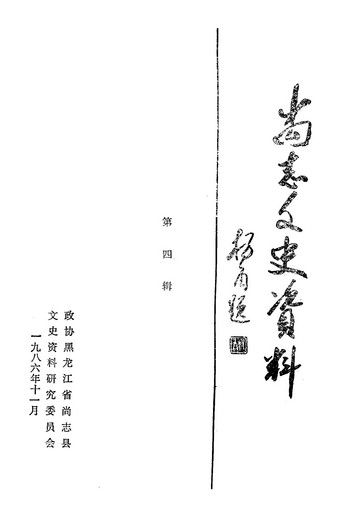 尚志文史资料
第四辑
政协黑龙江省尚志县
文史资料研究委员会
一九八六年十一月